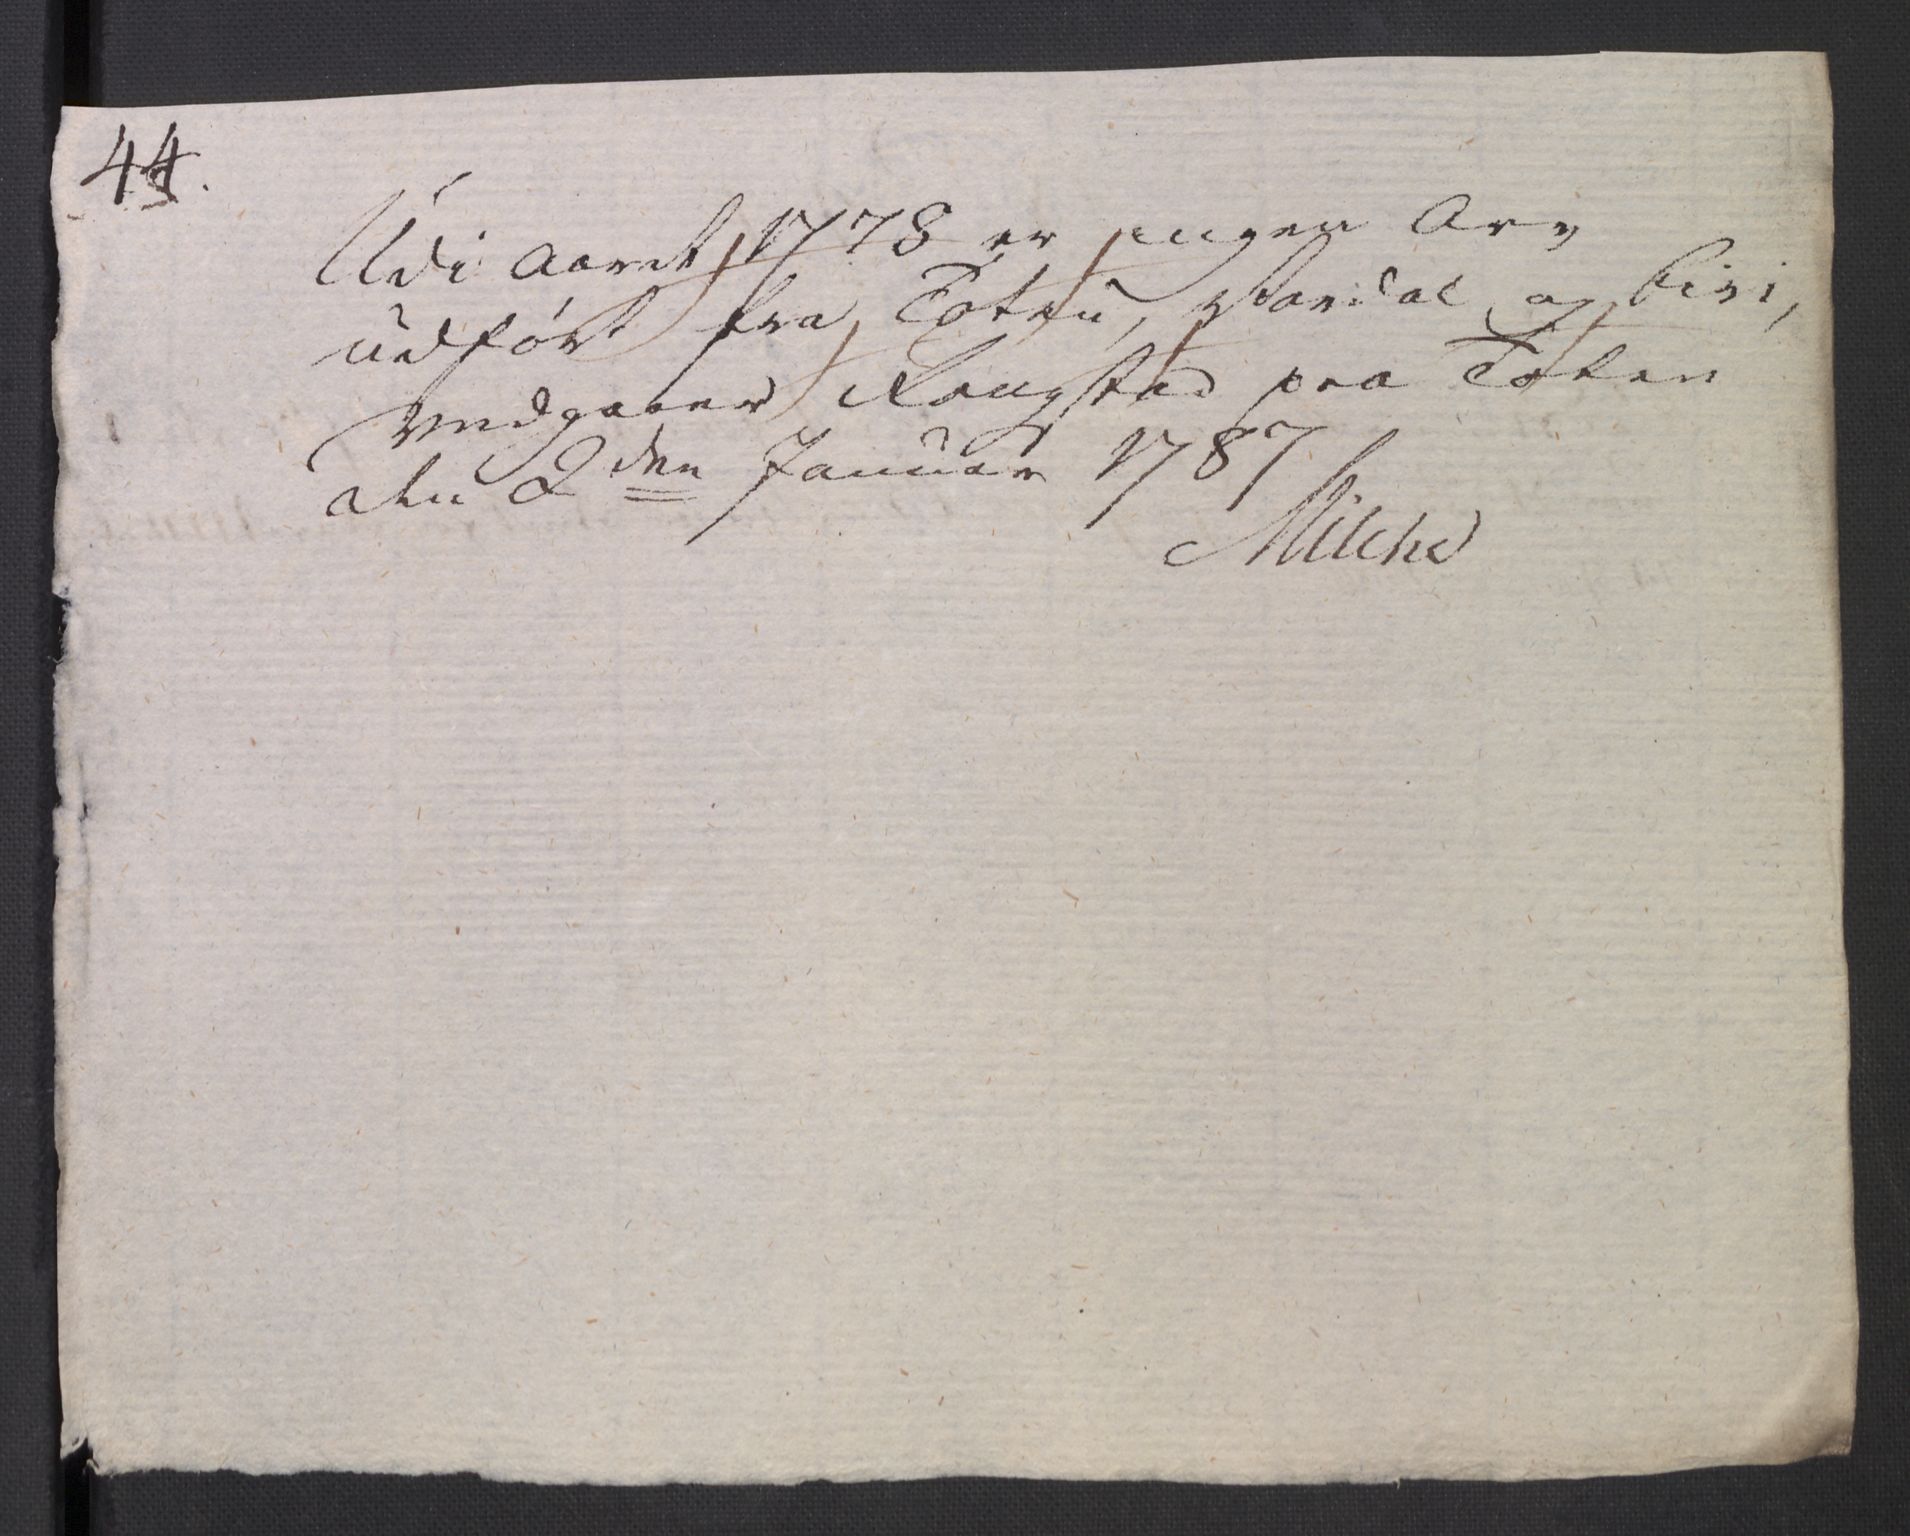 44.
Udi Aaret 1778 er ingen Arv
udført fra Toten, Vardal og Biri,
vedgaaer Rougstad paa Toten
den 2den Januar 1787
Milche